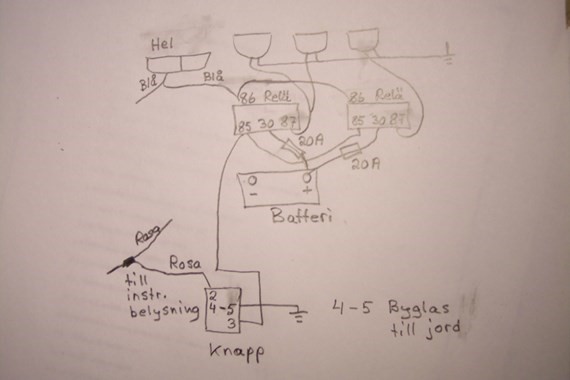 Hel
Blå
Blå
86 Relä
86 Relä
85 30 87
85 30 87
20A
20A
- +
Batteri
Rosa
Rosa
till
instr.
belysning
2
4-5
3
4-5 Byglas
till jord
Knapp